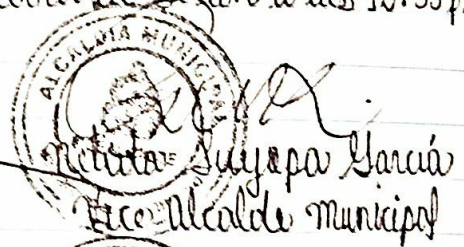 a las 12:35 p
ALCALDIA MUNICIPAL
Suyapa García
Vice Alcalde Municipal